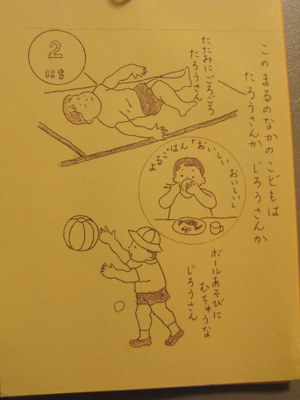 このまるのなかのこどもは
たろうさんか じろうさんか
2
たたみにごろごろ
たろうさん
よるごはん「おいしい
おいしい」
ボールあそびに
むちゅうな
じろうさん